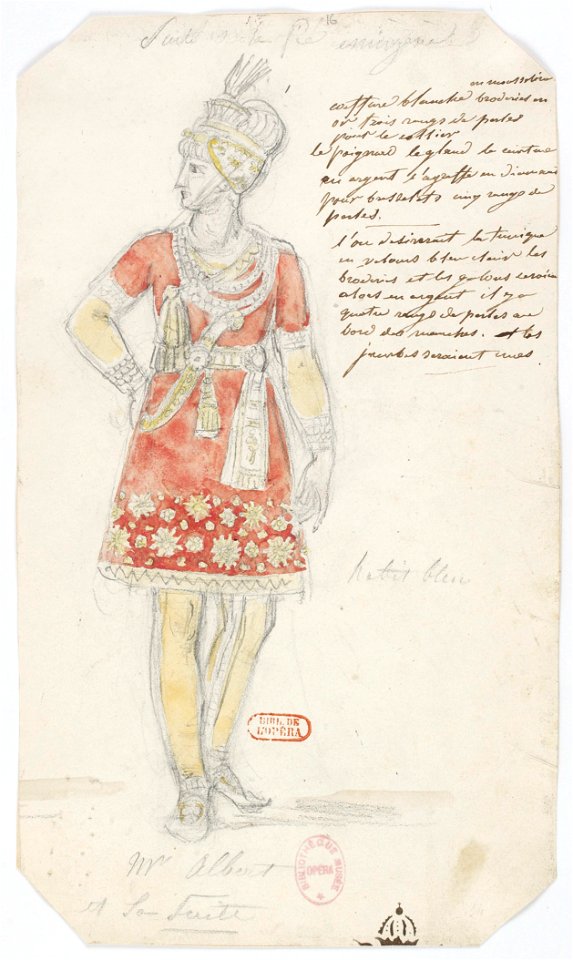 16
Suite
en mousseline
coiffure blanche broderies en
or trois rangs de perles
pour le collier
le poignard le gland la ceinture
en argent l'agraffe en diamans
pour busselets cinq rangs de
perles.
l'on desireroit la tunique
en velours bleu clair les
broderies et les galons seroient
alors en argent il y a
quatre rangs de perles au
bord des manches. et les
jambes seraient nues
habit bleu
BIB. DE
L'OPÉRA
Mr Albert
BIBLIOTHÈQUE MUSÉE
OPÉRA
et Sa Suite